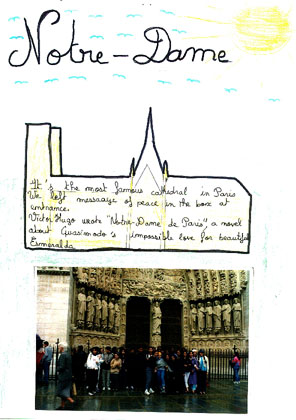 Notre-Dame
It's the most famous cathedral in Paris
We left message of peace in the box at
entrance.
Victor Hugo wrote "Notre-Dame de Paris", a novel
about Quasimodo's impossible love for beautiful
Esmeralda.